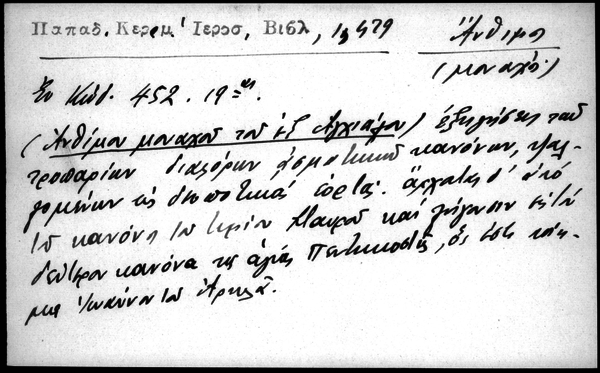 Παπαδ. Κεραμ. Ιεροσ, Βιβλ, 1, 479
Ἄνθιμος
(μοναχός)
Ἐν Κώδ. 452. 19ης.
(Ἀνθίμου μοναχοῦ τοῦ ἐξ Ἀγχιάλου) ἐξηγήσεις τῶν
τροπαρίων διαφόρων ᾀσματικῶν κανόνων, ψαλ-
λομένων εἰς δεσποτικάς ἑορτάς. ἄρχεται δ' ἀπό
τοῦ κανόνος τοῦ κυρίου Κοσμᾶ καί λήγουσιν εἰς τόν
δεύτερον κανόνα τῆς ἁγίας Πεντηκοστῆς, ὅς ἐστι ποίη-
μα Ἰωάννου τοῦ Ἀρκλᾶ.